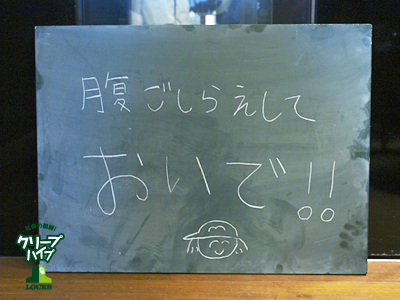 腹ごしらえして
おいで!!
クリープ
ハイプ
LOCKS